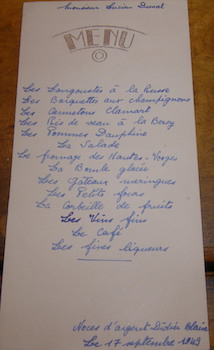 Monsieur Lucien Duval
MENU
Les Langoustes à la Russe
Les Barquettes aux champignons
Les Canetons Clamart
Les Ris de veau à la Bercy
Les Pommes Dauphine
La Salade
Le fromage des Hautes-Vosges
La Bombe glacée
Les Gâteaux meringues
Les Petits fours
La Corbeille de fruits
Les Vins fins
Le Café
Les fines liqueurs
Noces d'argent Didier
Le 17 septembre 1949